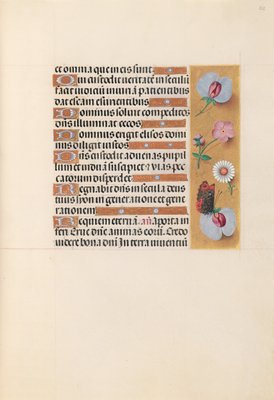 et omnia que in eis sunt
Qui custodit veritatem in seculū
facit iudicium iniuriā patientibus
dat escam esurientibus
Dominus soluit compeditos
dn̄s illuminat cecos
Dominus erigit elisos domi
nus diligit iustos
Dn̄s custodit aduenas pupil
lum et viduā suscipiet et vias pec
catorum disperdet
Regnabit dn̄s in secula deus
tuus sion in generatione et gene
rationem
Requiem eternā an̄ A porta in
feri Erue dn̄e animas eorū Credo
videre bona dn̄i In terra viuentiū